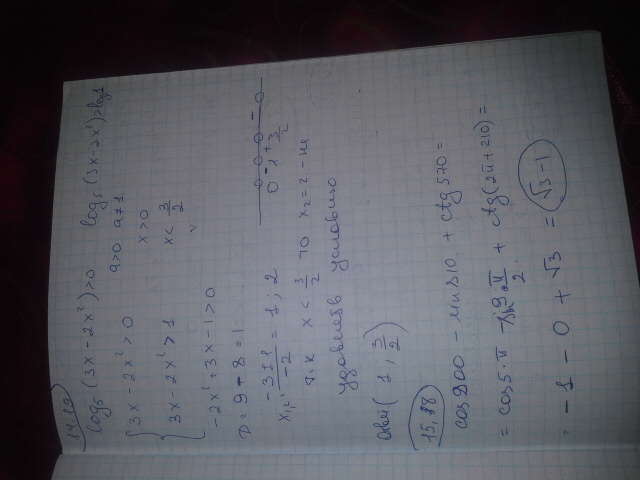 14,19
log₅ (3x - 2x²) > 0 log₅ (3x - 2x²) > log 1
3x - 2x² > 0 a>0 a≠1
x>0
3x - 2x² > 1 x < 3/2
-2x² + 3x - 1 > 0
D = 9 - 8 = 1
x₁,₂ = -3±1/-2 = 1 ; 2
0 - 1 + 3/2 -
т.к x < 3/2 то x₂ = 2 - не
удовлетв условию
Ответ ( 1 , 3/2 )
15,18
cos 900 - sin 810 + ctg 570 =
= cos 5·π - sin 9·π/2 + ctg (2π + 210) =
= -1 - 0 + √3 = √3 - 1